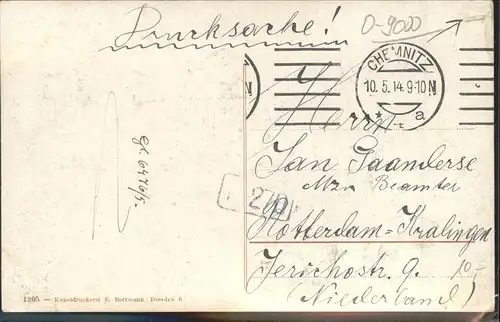 Drucksache!
O-9000
CHEMNITZ
10.5.14.9-10N
* a
Herrn
Jan Gaanderse
Beamter
270
Rotterdam=Kralingen
Jerichostr. 9.
10,-
(Niederland)
1205 — Kunstdruckerei K. Rothmann, Dresden 6